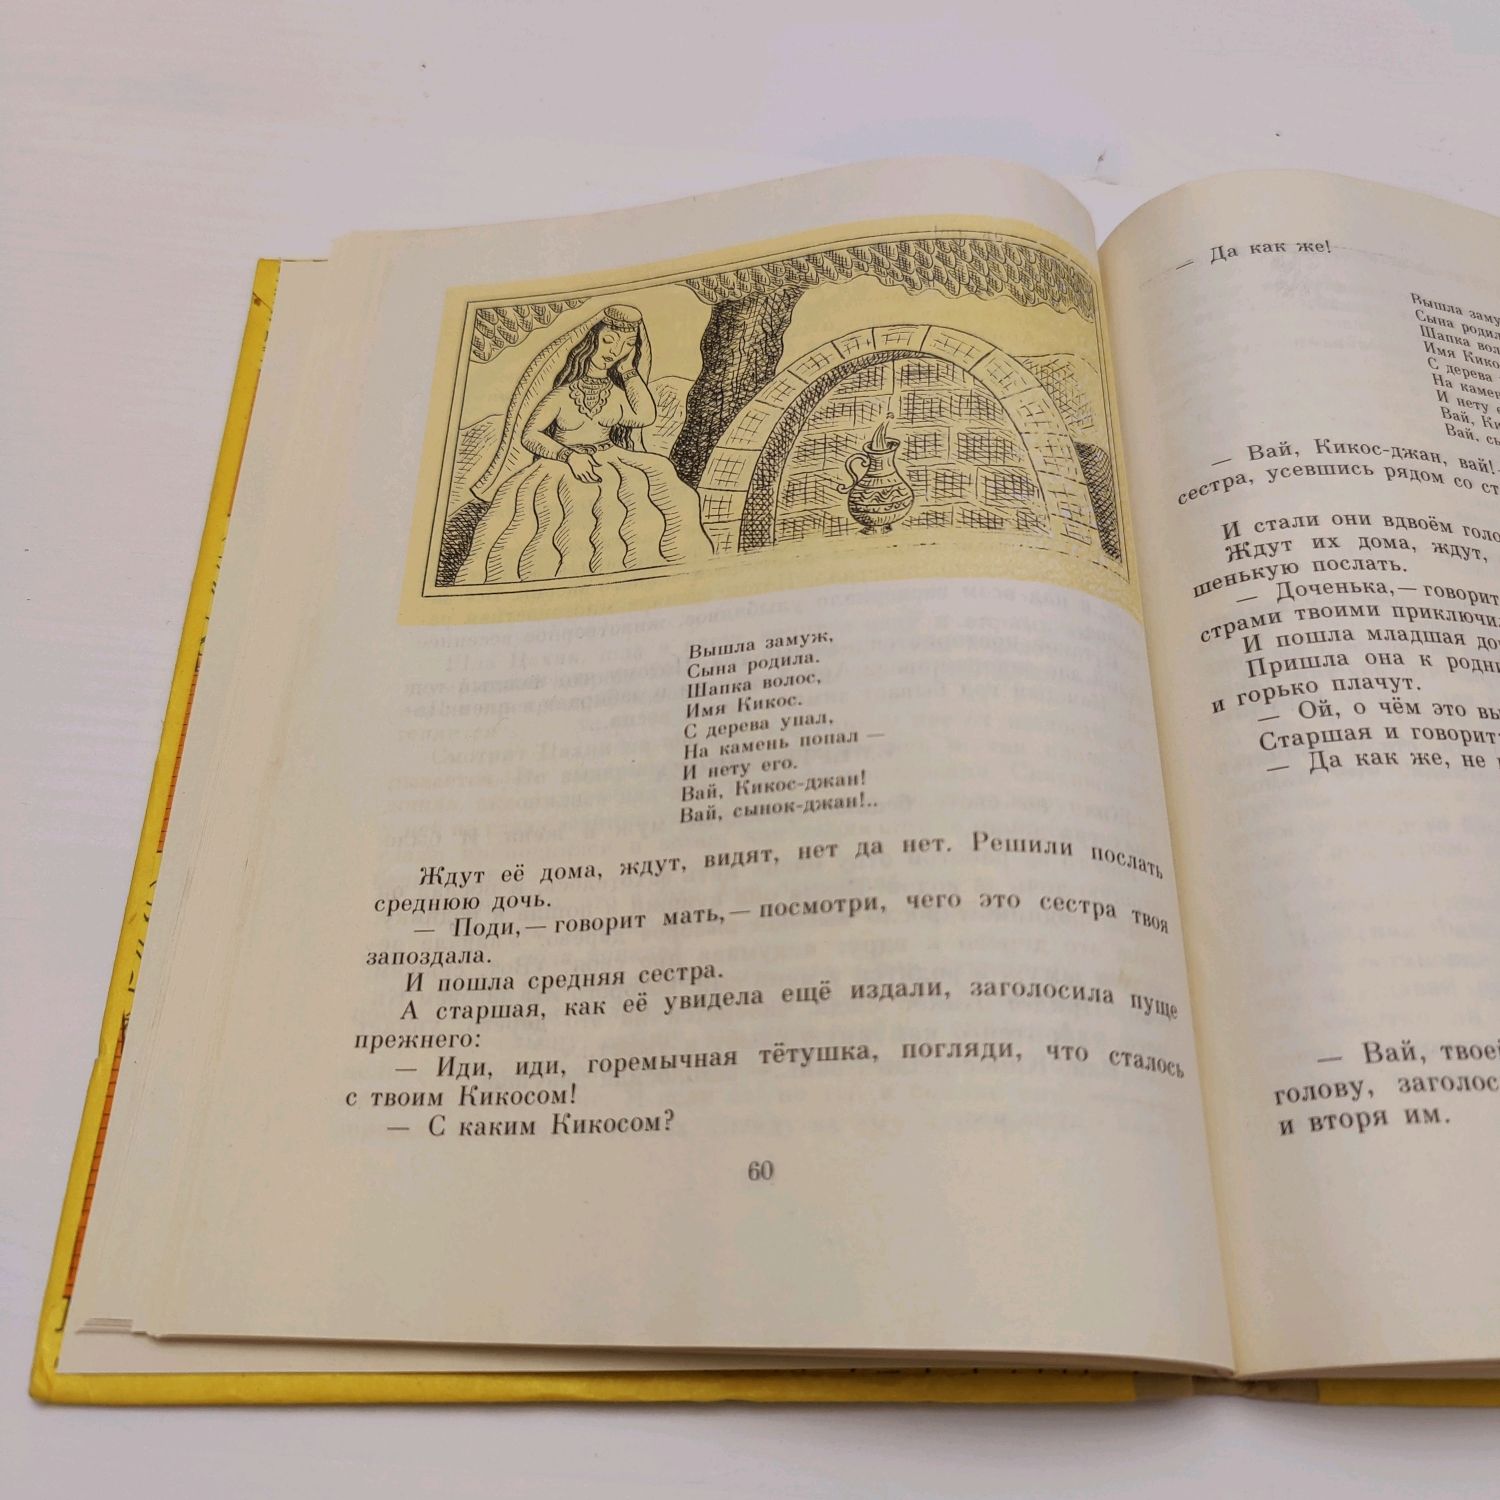 Вышла замуж,
Сына родила.
Шапка волос,
Имя Кикос.
С дерева упал,
На камень попал —
И нету его.
Вай, Кикос-джан!
Вай, сынок-джан!..
Ждут её дома, ждут, видят, нет да нет. Решили послать
среднюю дочь.
— Поди,— говорит мать,— посмотри, чего это сестра твоя
запоздала.
И пошла средняя сестра.
А старшая, как её увидела ещё издали, заголосила пуще
прежнего:
— Иди, иди, горемычная тётушка, погляди, что сталось
с твоим Кикосом!
— С каким Кикосом?
60
— Да как же!
Вышла
Сына
Шапка
Имя
С дерева
На
И нету
Вай,
Вай,
— Вай, Кикос-джан, вай!
сестра, усевшись рядом со
И стали они вдвоём
Ждут их дома, ждут,
шенькую послать.
— Доченька,— говорит
страми твоими
И пошла младшая
Пришла она к
и горько плачут.
— Ой, о чём это
Старшая и говорит
— Да как же, не
— Вай,
голову,
и вторя им.